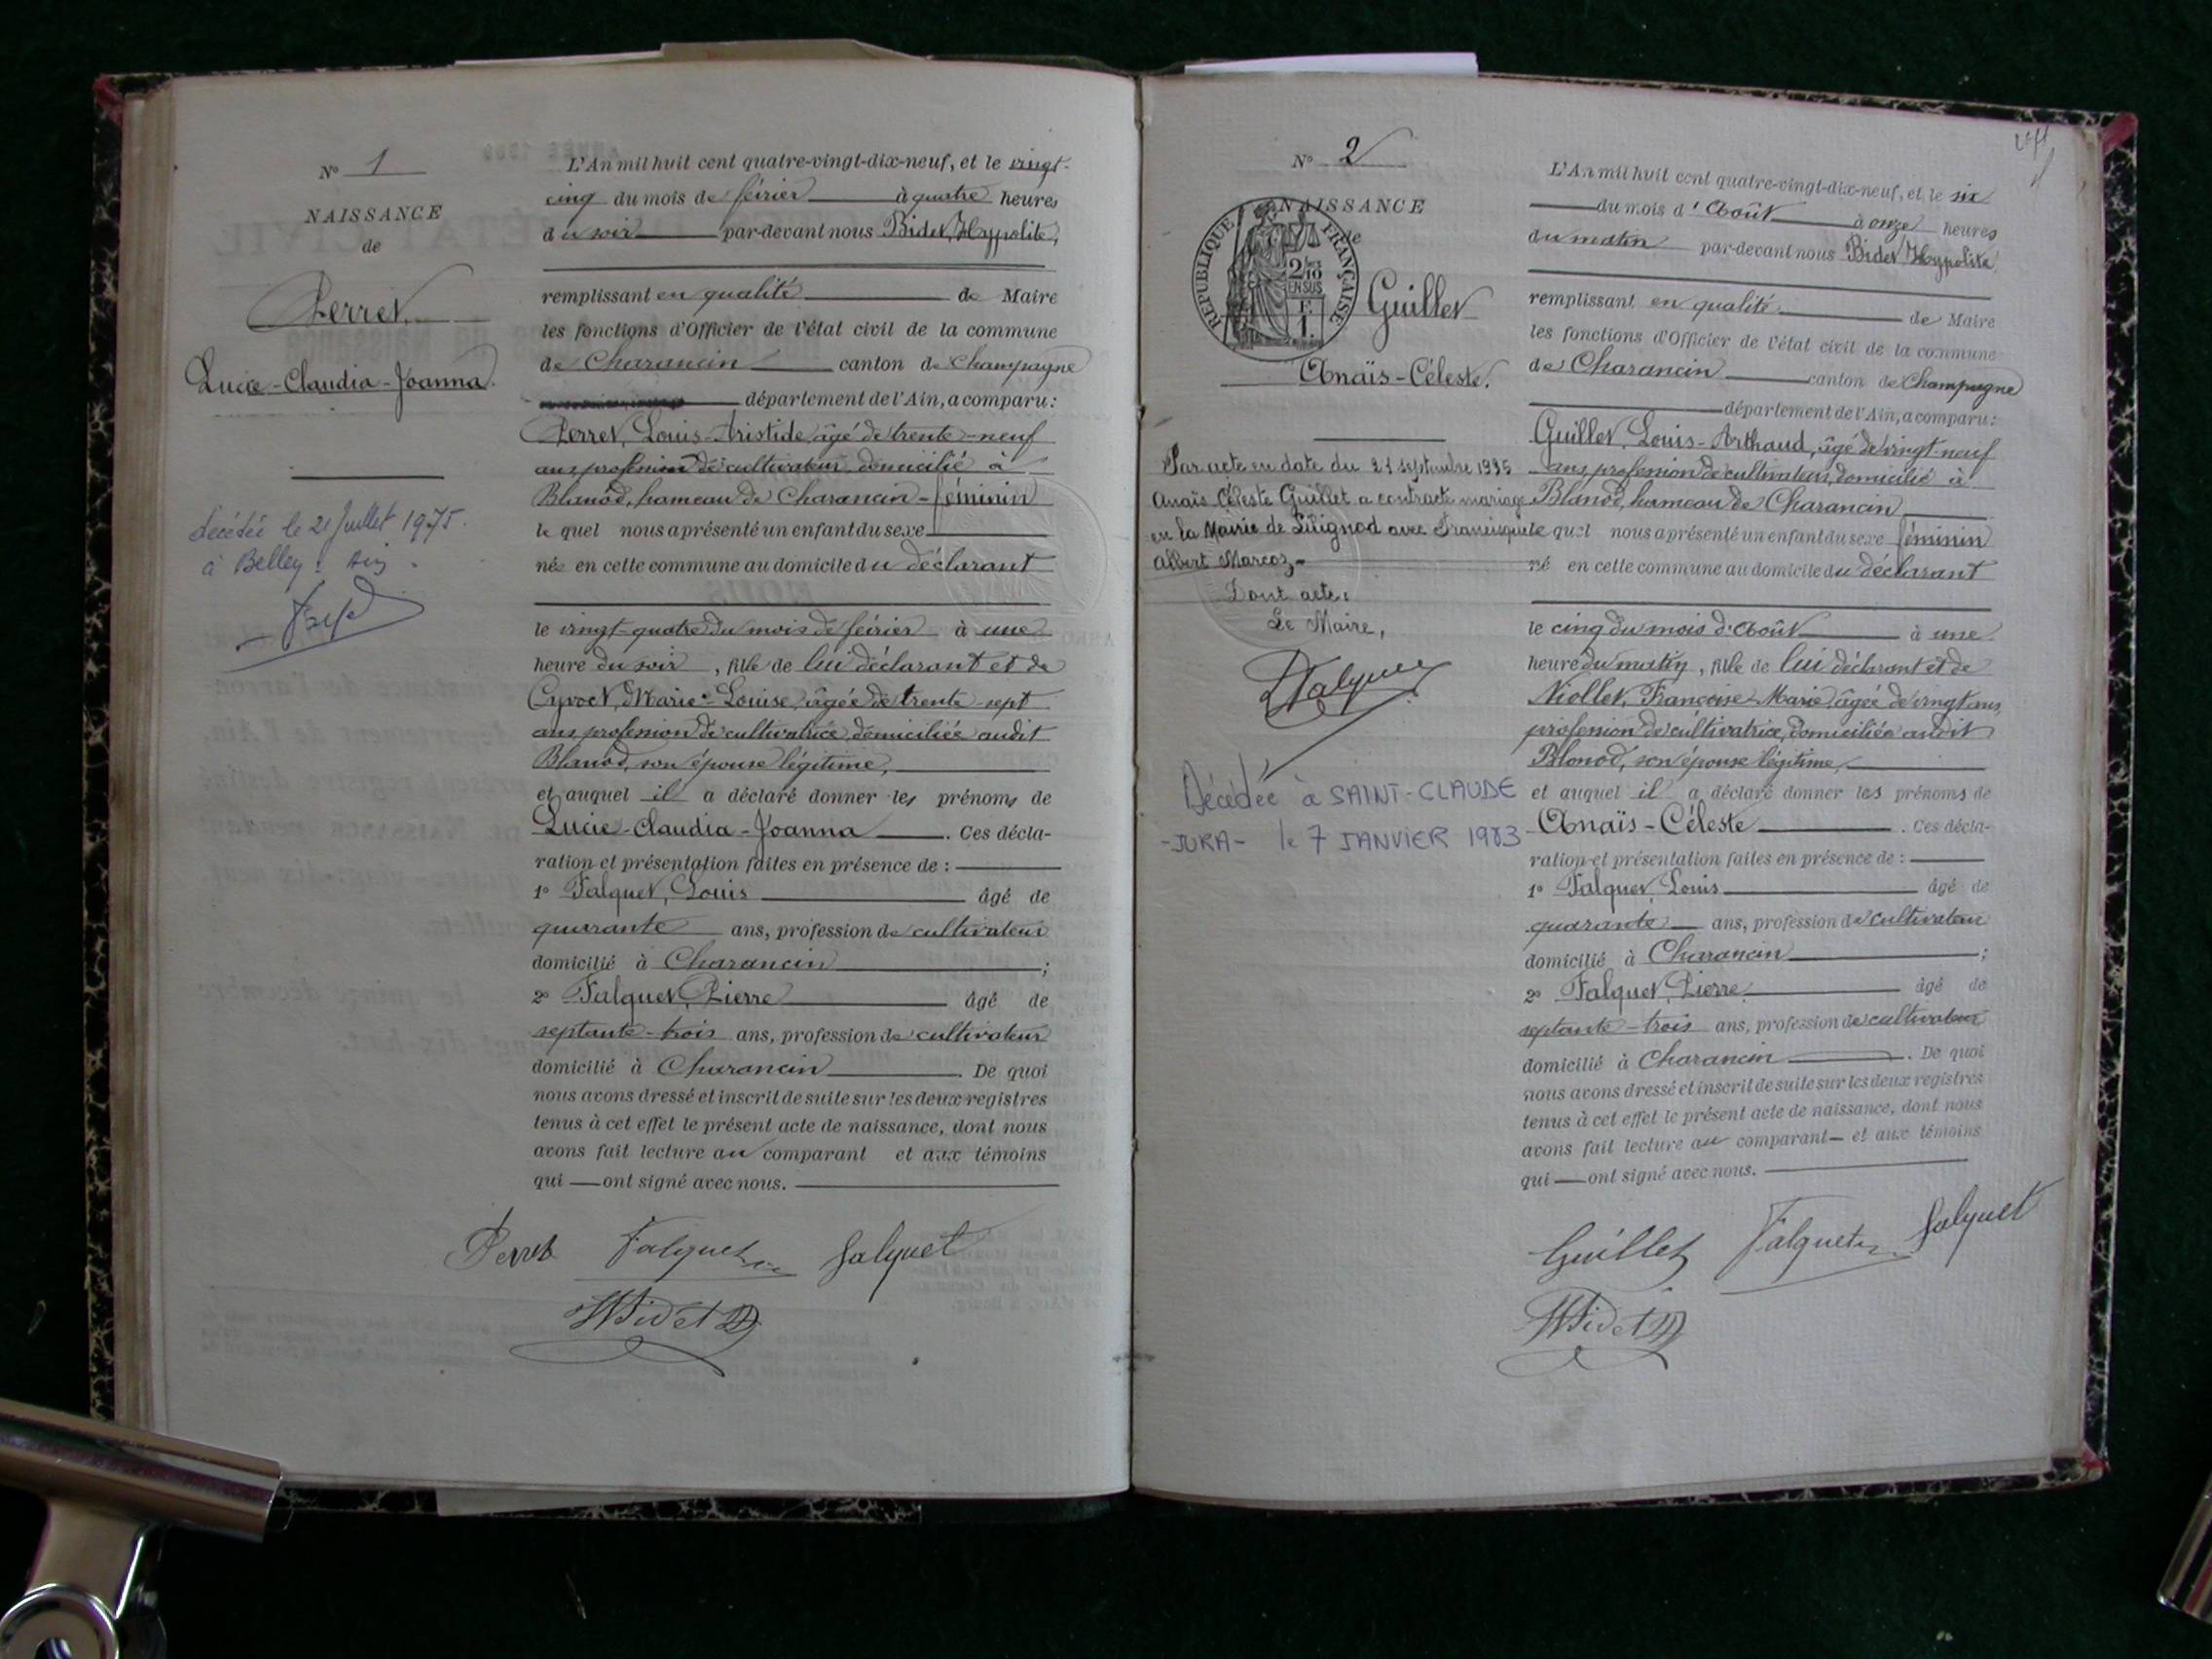 N° 1
NAISSANCE
de
Perret
Lucie-Claudia-Joanna.
décédée le 21 Juillet 1975.
à Belley. Ain.
L'An mil huit cent quatre-vingt-dix-neuf, et le vingt-
cinq du mois de février à quatre heures
du soir par-devant nous Bidet, Hyppolite,
remplissant en qualité de Maire
les fonctions d'Officier de l'état civil de la commune
de Charancin canton de Champagne
département de l'Ain, a comparu :
Perret, Louis-Aristide, âgé de trente-neuf
ans, profession de cultivateur, domicilié à
Blanod, hameau de Charancin - féminin
lequel nous a présenté un enfant du sexe
née en cette commune au domicile du déclarant
le vingt-quatre du mois de février à une
heure du soir, fille de lui déclarant et de
Cyvoct, Marie-Louise, âgée de trente-sept
ans, profession de cultivatrice, domiciliée audit
Blanod, son épouse légitime,
et auquel il a déclaré donner les prénoms de
Lucie-Claudia-Joanna. Ces décla-
ration et présentation faites en présence de :
1° Falquet, Louis âgé de
quarante ans, profession de cultivateur
domicilié à Charancin ;
2° Falquet, Pierre âgé de
septante-trois ans, profession de cultivateur
domicilié à Charancin. De quoi
nous avons dressé et inscrit de suite sur les deux registres
tenus à cet effet le présent acte de naissance, dont nous
avons fait lecture au comparant et aux témoins
qui ont signé avec nous.
Perret Falquet Falquet
HBidet
N° 2
NAISSANCE
de
RÉPUBLIQUE FRANÇAISE
2/10
EN SUS
F
1.
Guillet
Anaïs-Céleste.
Par acte en date du 21 septembre 1935
Anaïs Céleste Guillet a contracté mariage
en la Mairie de Lilignod avec Francisque
Albert Marcoz-
Dont acte.
Le Maire,
Falquet
Décédée à SAINT-CLAUDE
-JURA- le 7 JANVIER 1983
L'An mil huit cent quatre-vingt-dix-neuf, et le six
du mois d'Août à onze heures
du matin par-devant nous Bidet, Hyppolite,
remplissant en qualité de Maire
les fonctions d'Officier de l'état civil de la commune
de Charancin canton de Champagne
département de l'Ain, a comparu :
Guillet, Louis-Arthaud, âgé de vingt-neuf
ans, profession de cultivateur, domicilié à
Blanod, hameau de Charancin
lequel nous a présenté un enfant du sexe féminin
né en cette commune au domicile du déclarant
le cinq du mois d'Août à une
heure du matin, fille de lui déclarant et de
Niollet, Françoise-Marie, âgée de vingt ans,
profession de cultivatrice, domiciliée audit
Blonod, son épouse légitime,
et auquel il a déclaré donner les prénoms de
Anaïs-Céleste. Ces décla-
ration et présentation faites en présence de :
1° Falquet, Louis âgé de
quarante ans, profession de cultivateur
domicilié à Charancin ;
2° Falquet, Pierre, âgé de
septante-trois ans, profession de cultivateur
domicilié à Charancin. De quoi
nous avons dressé et inscrit de suite sur les deux registres
tenus à cet effet le présent acte de naissance, dont nous
avons fait lecture au comparant et aux témoins
qui ont signé avec nous.
Guillet Falquet Falquet
HBidet